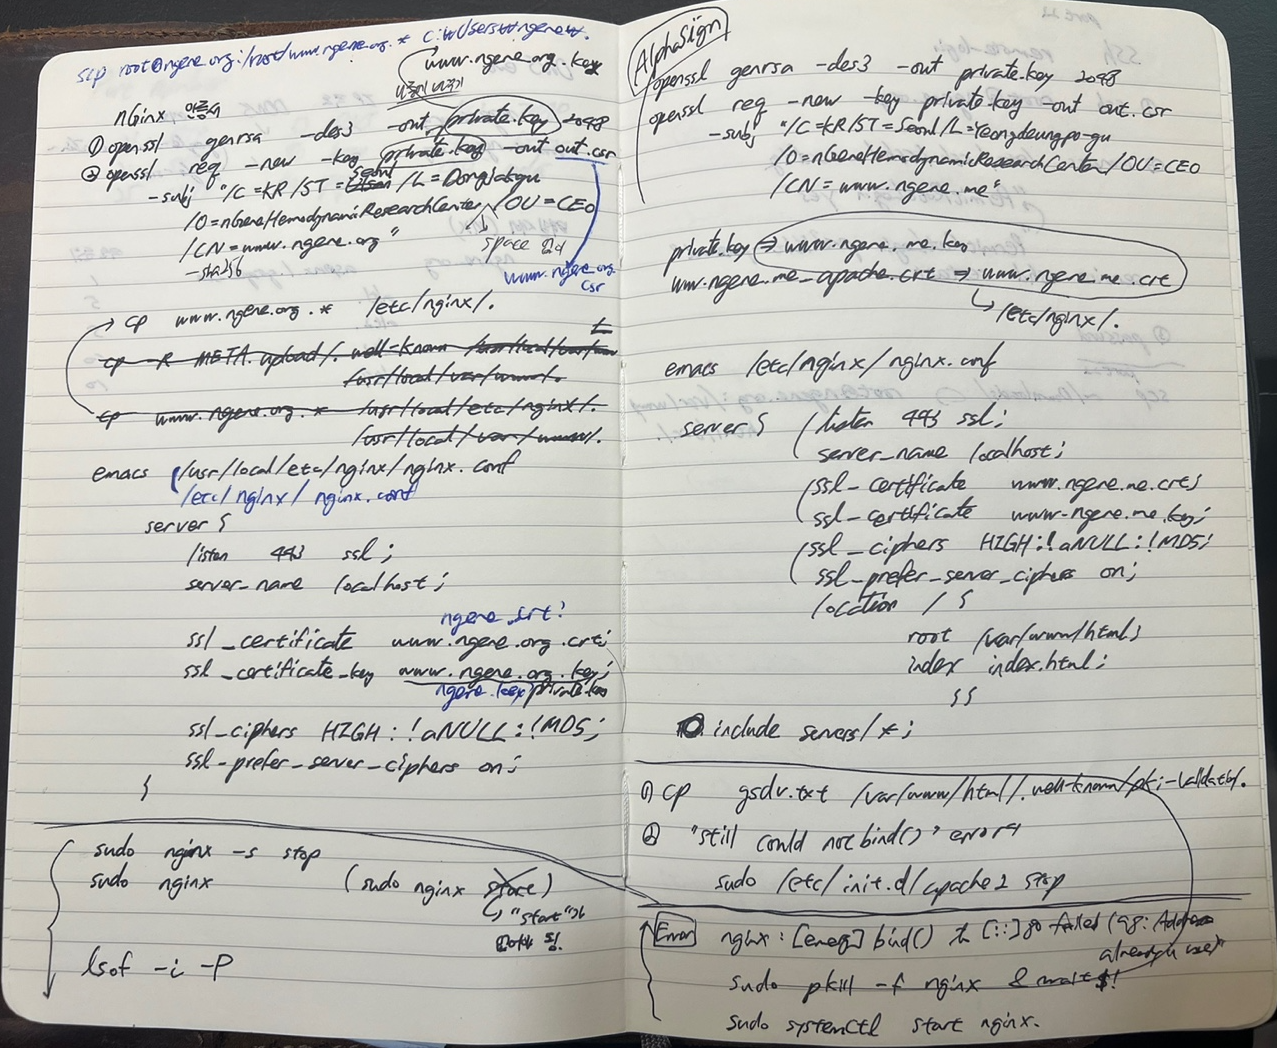 scp root@ngene.org:/root/www.ngene.org.* C:\Users\ngene\.
www.ngene.org.key
nginx 인증서
① openssl genrsa -des3 -out private.key 2048
② openssl req -new -key private.key -out out.csr
-subj "/C=KR/ST=Seoul/L=Dongjakgu
/O=nGeneHemodynamicResearchCenter/OU=CEO
/CN=www.ngene.org"
-sha256
space
www.ngene.org.csr
cp www.ngene.org.* /etc/nginx/.
cp -R META.upload/.well-known
/usr/local/var/www/.
cp www.ngene.org.* /usr/local/etc/nginx/.
/usr/local/var/www/.
emacs /usr/local/etc/nginx/nginx.conf
/etc/nginx/nginx.conf
server {
listen 443 ssl;
server_name localhost;
ngene.crt;
ssl_certificate www.ngene.org.crt;
ssl_certificate_key www.ngene.org.key;
ngene.key private.key
ssl_ciphers HIGH:!aNULL:!MD5;
ssl-prefer_server_ciphers on;
}
sudo nginx -s stop
sudo nginx (sudo nginx start)
"start"가
없어야 됨.
lsof -i -P
AlphaSign
openssl genrsa -des3 -out private.key 2048
openssl req -new -key private.key -out out.csr
-subj "/C=KR/ST=Seoul/L=Yeongdeungpo-gu
/O=nGeneHemodynamicResearchCenter/OU=CEO
/CN=www.ngene.me"
private.key ⇒ www.ngene.me.key
www.ngene.me_apache.crt ⇒ www.ngene.me.crt
↳ /etc/nginx/.
emacs /etc/nginx/nginx.conf
server { listen 443 ssl;
server_name localhost;
ssl_certificate www.ngene.me.crt;
ssl_certificate www.ngene.me.key;
ssl_ciphers HIGH:!aNULL:!MD5;
ssl_prefer_server_ciphers on;
location / {
root /var/www/html;
index index.html;
}}
include servers/*;
① cp gsdv.txt /var/www/html/.well-known/pki-validation/.
② "still could not bind()" error시
sudo /etc/init.d/apache2 stop
Error nginx: [emerg] bind() to [::]:80 failed (98: Address
already in use)
sudo pkill -f nginx & wait $!
sudo systemctl start nginx.